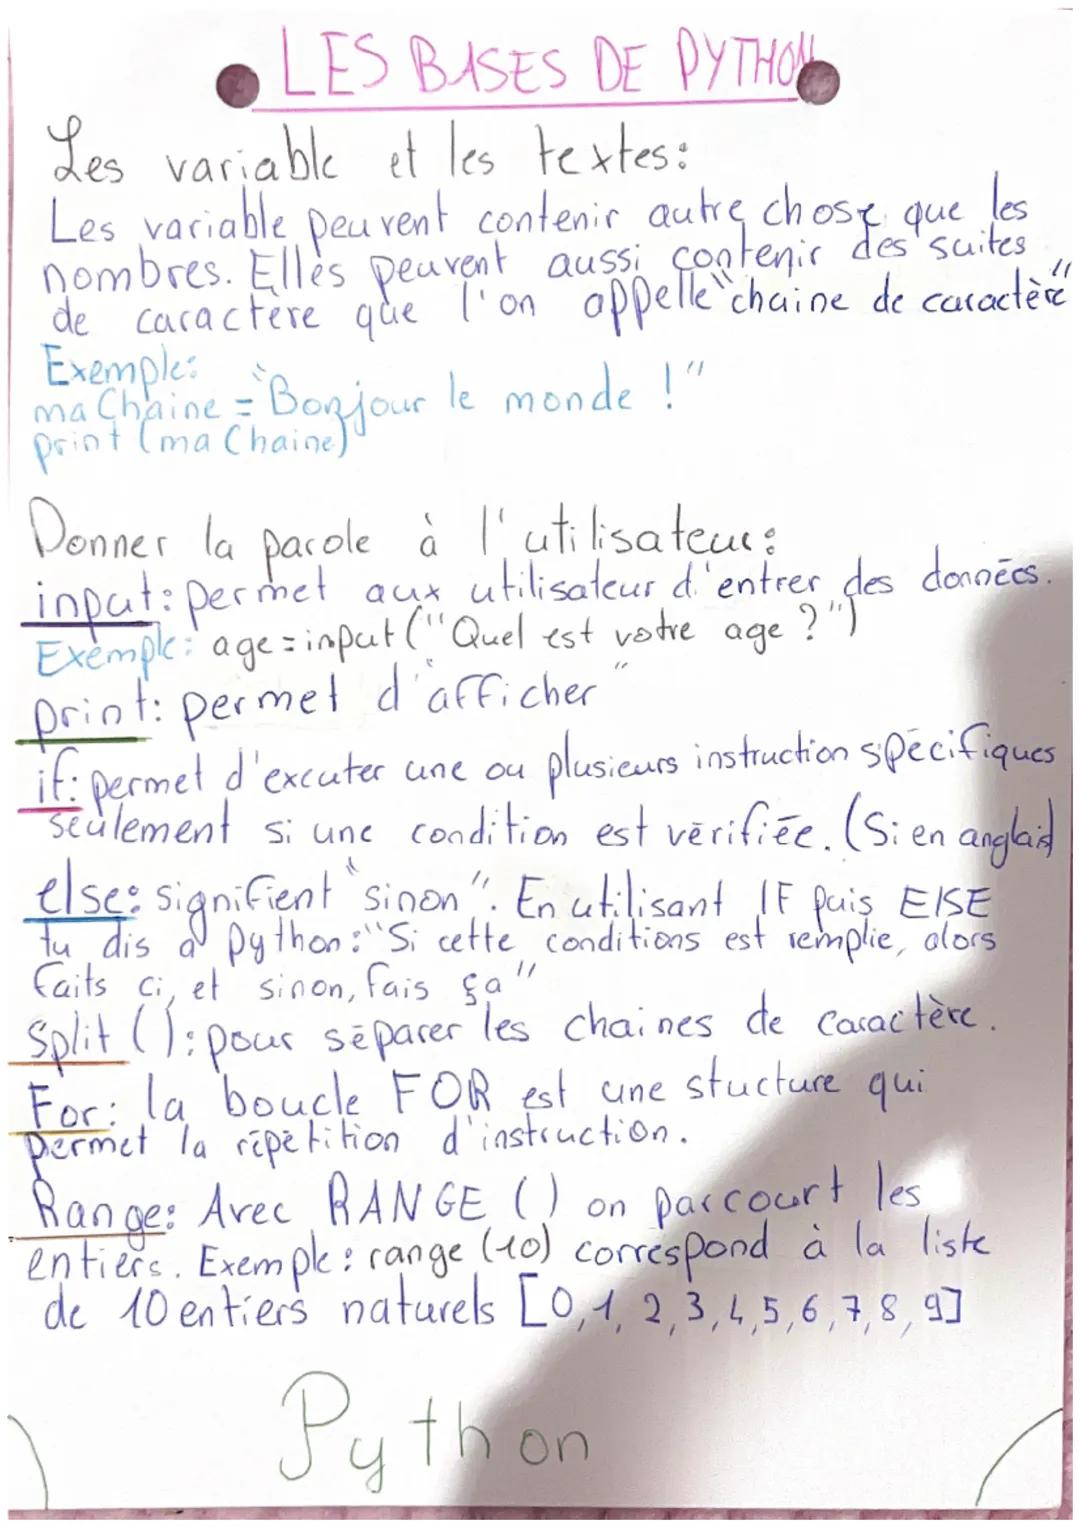 LES BASES DE PYTHON
Les variable et les textes:
Les variable peuvent contenir autre chose que les
nombres. Elles peuvent aussi contenir des suites
de caractère que l'on appelle "chaine de caractère"
Exemple:
ma Chaine = "Bonjour le monde !"
print (ma Chaine)
Donner la parole à l'utilisateur:
input: permet aux utilisateur d'entrer des données.
Exemple: age = input ("Quel est votre age ?")
print: permet d'afficher "
if: permet d'excuter une ou plusieurs instruction spécifiques
seulement si une condition est vérifiée. (Si en anglais)
else: signifient "sinon". En utilisant IF puis ElSE
tu dis à Python: "Si cette conditions est remplie, alors
faits ci, et sinon, fais ça"
Split (): pour séparer les chaines de caractère.
For: la boucle FOR est une stucture qui
permet la répétition d'instruction.
Range: Avec RANGE () on parcourt les
entiers. Exemple: range (10) correspond à la liste
de 10 entiers naturels [0,1,2,3,4,5,6,7,8,9]
Python